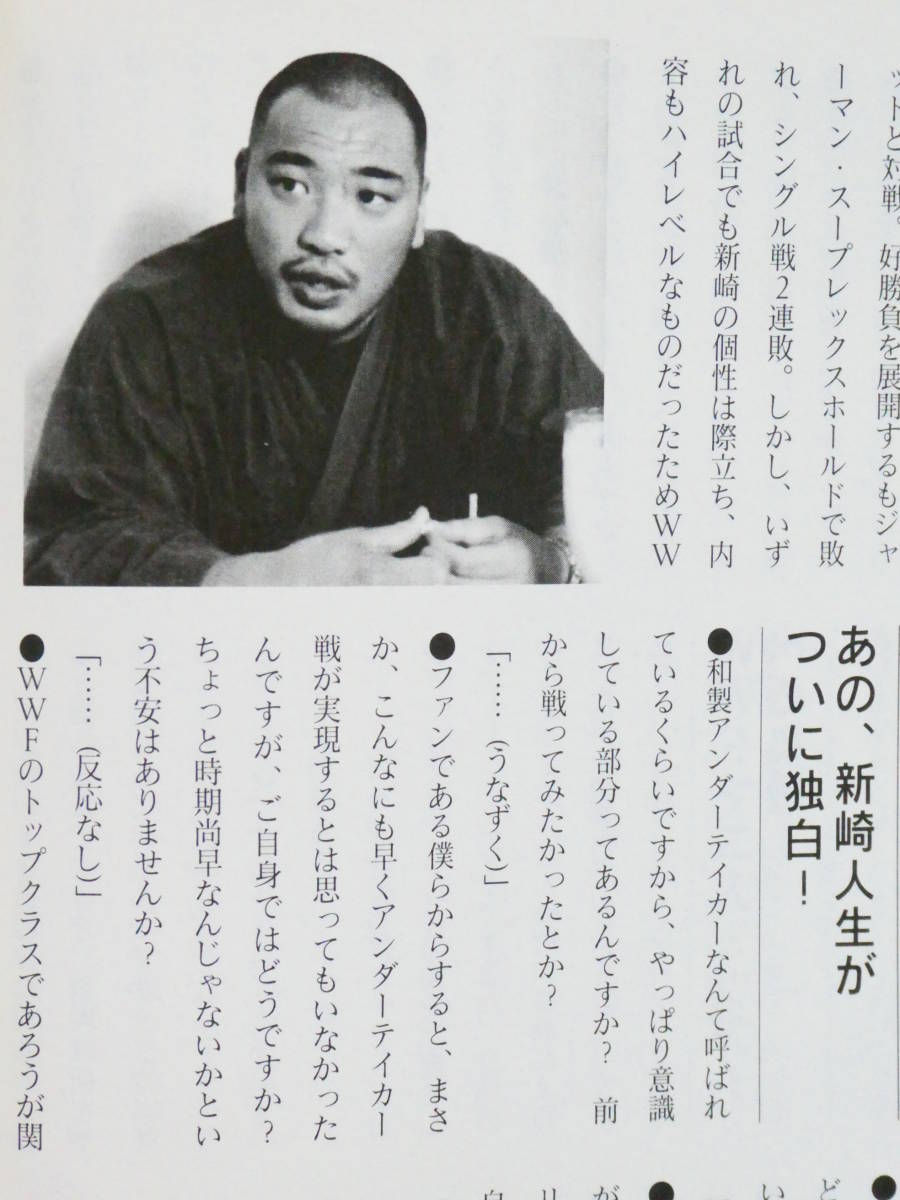 ットと対戦。好勝負を展開するもジャ
ーマン・スープレックスホールドで敗
れ、シングル戦2連敗。しかし、いず
れの試合でも新崎の個性は際立ち、内
容もハイレベルなものだったためWW
あの、新崎人生が
ついに独白!
●和製アンダーテイカーなんて呼ばれ
ているくらいですから、やっぱり意識
している部分ってあるんですか? 前
から戦ってみたかったとか?
「……(うなずく)」
●ファンである僕らからすると、まさ
か、こんなにも早くアンダーテイカー
戦が実現するとは思ってもいなかった
んですが、ご自身ではどうですか?
ちょっと時期尚早なんじゃないかとい
う不安はありませんか?
「……(反応なし)」
●WWFのトップクラスであろうが関
●
ど
い
●
が